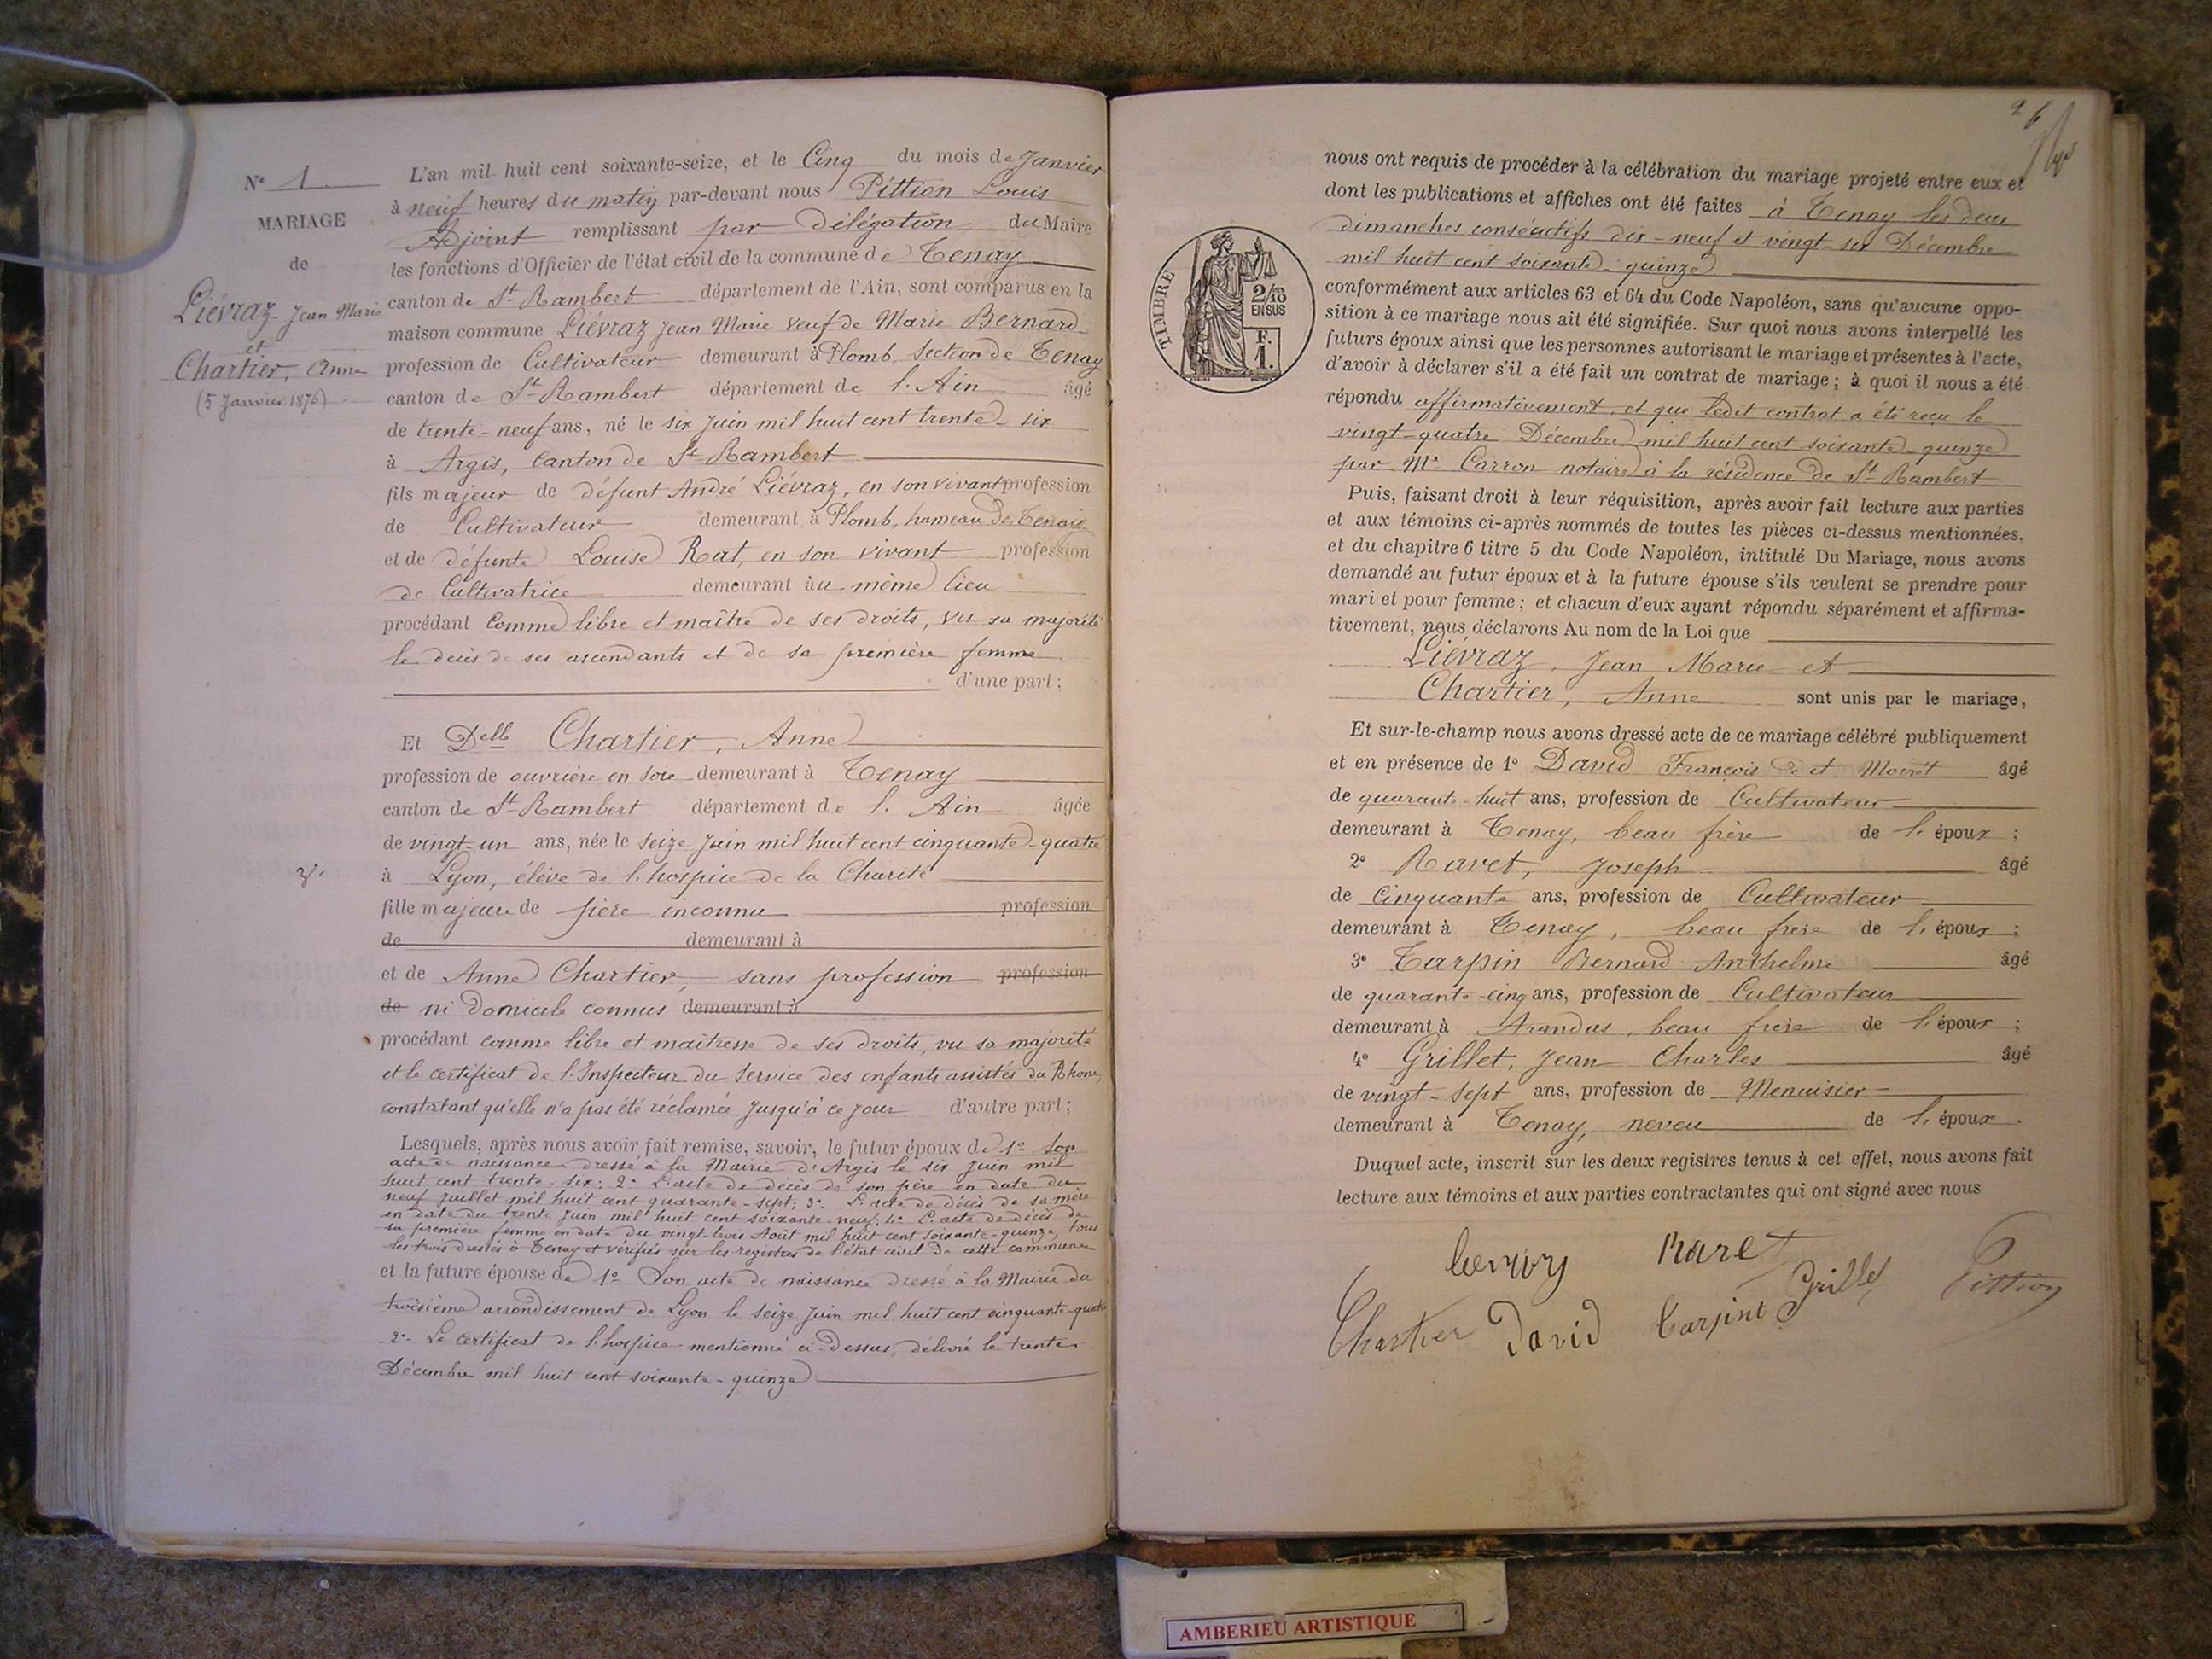 N° 1
MARIAGE
de
Liévraz Jean Marie
et
Chartier, Anne
(5 Janvier 1876)
L'an mil huit cent soixante-seize, et le Cinq du mois de Janvier
à neuf heures du matin par-devant nous Pittion Louis
Adjoint remplissant par délégation du Maire
les fonctions d'Officier de l'état civil de la commune de Tenay
canton de St Rambert département de l'Ain, sont comparus en la
maison commune Liévraz Jean Marie veuf de Marie Bernard
profession de Cultivateur demeurant à Plomb, section de Tenay
canton de St Rambert département de l'Ain âgé
de trente-neuf ans, né le six Juin mil huit cent trente-six
à Argis, Canton de St Rambert
fils majeur de défunt André Liévraz, en son vivant profession
de Cultivateur demeurant à Plomb, hameau de Tenay
et de défunte Louise Rat, en son vivant profession
de Cultivatrice demeurant au même lieu
procédant comme libre et maître de ses droits, vu sa majorité
le décès de ses ascendants et de sa première femme
d'une part;
Et Delle Chartier, Anne
profession de ouvrière en soie demeurant à Tenay
canton de St Rambert département de l'Ain âgée
de vingt-un ans, née le seize Juin mil huit cent cinquante-quatre
à Lyon, élève de l'hospice de la Charité
fille majeure de père inconnu profession
de demeurant à
et de Anne Chartier, sans profession profession
de ni domicile connus demeurant à
procédant comme libre et maîtresse de ses droits, vu sa majorité
et le certificat de l'Inspecteur du Service des enfants assistés du Rhône,
constatant qu'elle n'a pas été réclamée jusqu'à ce jour d'autre part;
Lesquels, après nous avoir fait remise, savoir, le futur époux de 1° Son
acte de naissance dressé à la Mairie d'Argis le six Juin mil
huit cent trente-six; 2° L'acte de décès de son père en date du
neuf Juillet mil huit cent quarante-sept; 3° L'acte de décès de sa mère
en date du trente Juin mil huit cent soixante-neuf; 4° L'acte de décès de
sa première femme en date du vingt-trois Août mil huit cent soixante-quinze, tous
les trois dressés à Tenay et vérifiés sur les registres de l'état civil de cette commune
et la future épouse de 1° Son acte de naissance dressé à la Mairie du
troisième arrondissement de Lyon le seize Juin mil huit cent cinquante-quatre
2° Le certificat de l'hospice mentionné ci-dessus, délivré le trente
Décembre mil huit cent soixante-quinze
nous ont requis de procéder à la célébration du mariage projeté entre eux et
dont les publications et affiches ont été faites à Tenay les deux
dimanches consécutifs dix-neuf et vingt-six Décembre
mil huit cent soixante-quinze
TIMBRE
2/10
EN SUS
F.
1.
conformément aux articles 63 et 64 du Code Napoléon, sans qu'aucune oppo-
sition à ce mariage nous ait été signifiée. Sur quoi nous avons interpellé les
futurs époux ainsi que les personnes autorisant le mariage et présentes à l'acte,
d'avoir à déclarer s'il a été fait un contrat de mariage; à quoi il nous a été
répondu affirmativement, et que ledit contrat a été reçu le
vingt-quatre Décembre mil huit cent soixante-quinze
par Me Carron notaire à la résidence de St Rambert
Puis, faisant droit à leur réquisition, après avoir fait lecture aux parties
et aux témoins ci-après nommés de toutes les pièces ci-dessus mentionnées,
et du chapitre 6 titre 5 du Code Napoléon, intitulé Du Mariage, nous avons
demandé au futur époux et à la future épouse s'ils veulent se prendre pour
mari et pour femme; et chacun d'eux ayant répondu séparément et affirma-
tivement, nous déclarons Au nom de la Loi que
Liévraz, Jean Marie et
Chartier, Anne sont unis par le mariage,
Et sur-le-champ nous avons dressé acte de ce mariage célébré publiquement
et en présence de 1° David François âgé
de quarante-huit ans, profession de Cultivateur
demeurant à Tenay, beau frère de l'époux;
2° Ravet, Joseph âgé
de Cinquante ans, profession de Cultivateur
demeurant à Tenay, beau frère de l'époux;
3° Tarpin Bernard Anthelme âgé
de quarante-cinq ans, profession de Cultivateur
demeurant à Arandas, beau frère de l'époux;
4° Grillet, Jean Charles âgé
de vingt-sept ans, profession de Menuisier
demeurant à Tenay, neveu de l'époux.
Duquel acte, inscrit sur les deux registres tenus à cet effet, nous avons fait
lecture aux témoins et aux parties contractantes qui ont signé avec nous
Ravet
Grillet
Pittion
Chartier David Tarpin
AMBERIEU ARTISTIQUE